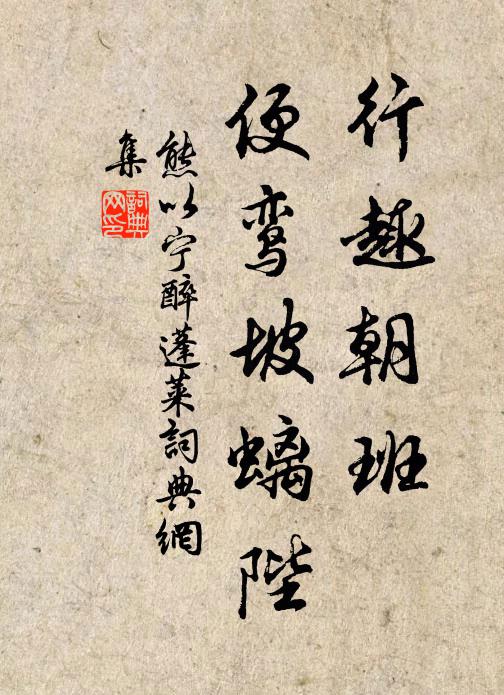 行趣朝班
便鸾坡螭陛
熊以宁醉蓬莱詞典網
集
詞典网印